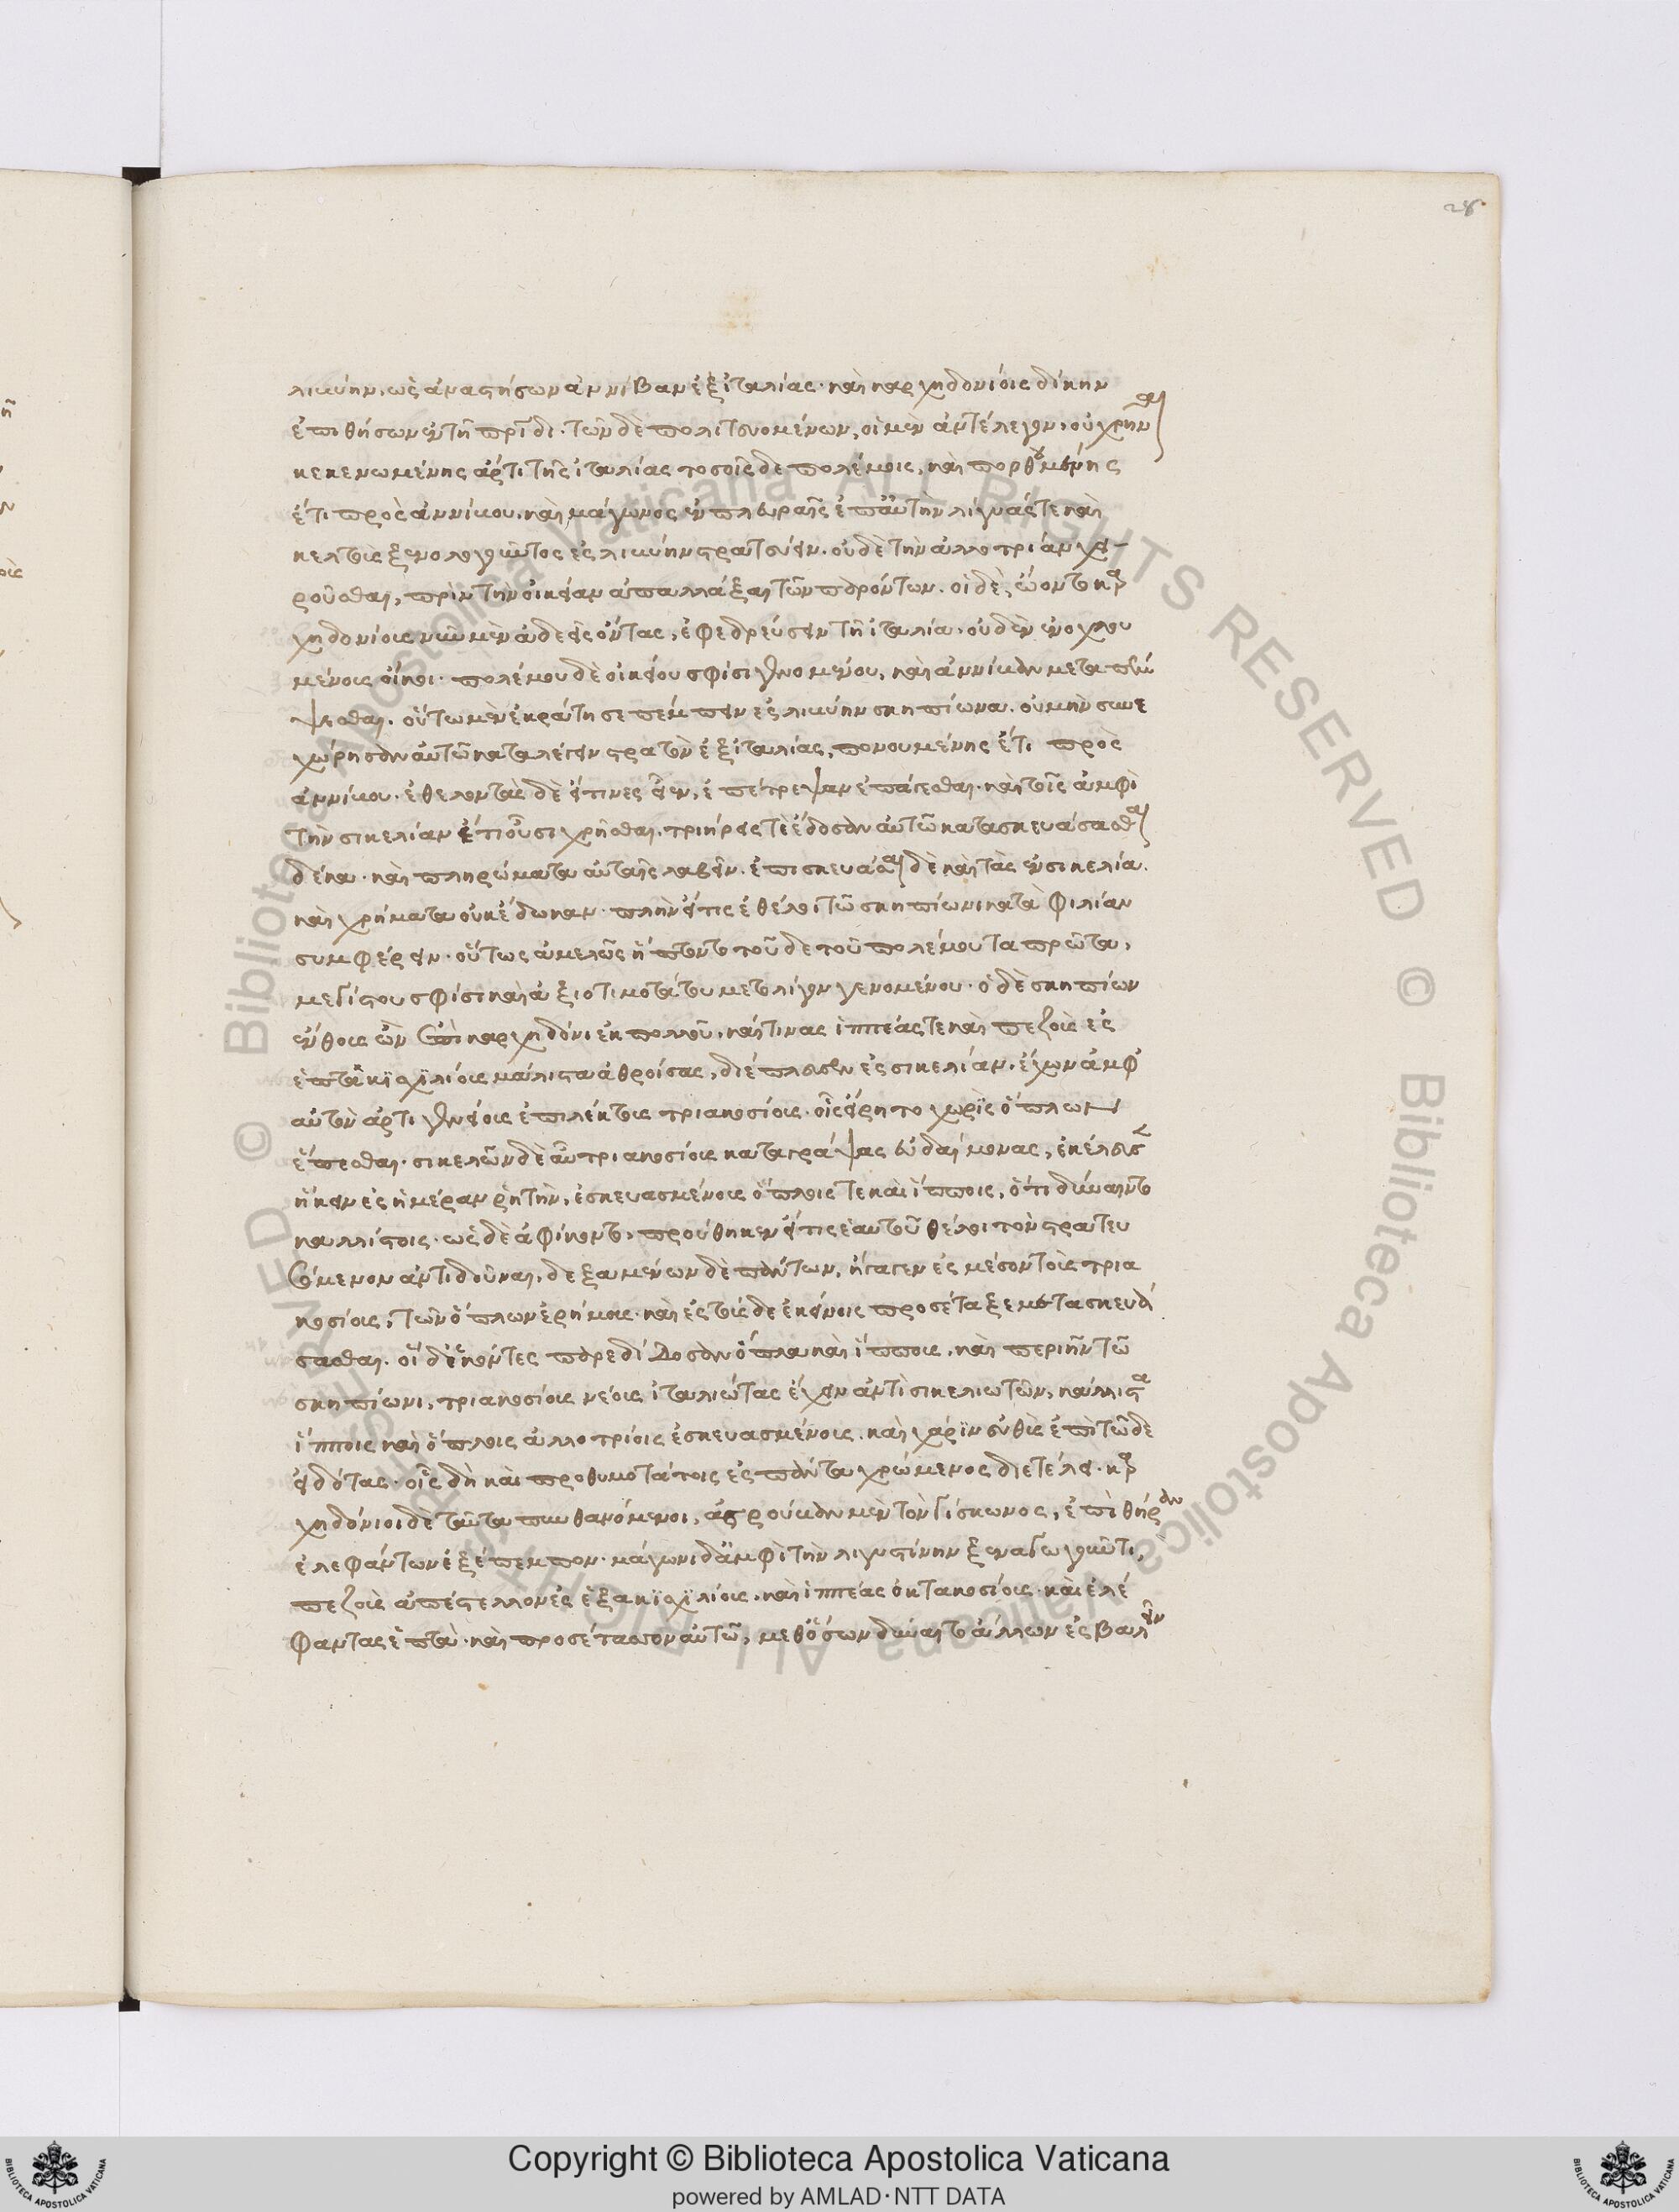 28
λιβύην, ὡς ἀναστήσων ἀννίβαν ἐξ ἰταλίας· καὶ καρχηδονίοις δίκην
ἐπιθήσων ἐν τῇ πατρίδι. τῶν δὲ πολιτευομένων, οἱ μὲν ἀντέλεγον, οὐ χρῆναι
κεκενωμένης ἄρτι τῆς ἰταλίας τοσοῖσδε πολέμοις, καὶ πορθουμένης
ἔτι πρὸς ἀννίβου, καὶ μάγωνος ἐν πλευραῖς ἐπ' αὐτὴν λίγυάς τε καὶ
κελτοὺς ξενολογοῦντος ἐς λιβύην στρατεύειν. οὐδὲ τὴν ἀλλοτρίαν χει-
ροῦσθαι, πρὶν τὴν οἰκείαν ἀπαλλάξαι τῶν παρόντων. οἱ δὲ, ᾤοντο καρ
χηδονίους νῦν μὲν ἀδεεῖς ὄντας, ἐφεδρεύειν τῇ ἰταλίᾳ, οὐδὲν ἐνοχλου
μένους οἴκοι· πολέμου δὲ οἰκείου σφίσι γενομένου, καὶ ἀννίβαν μεταπέμ
ψεσθαι. οὕτω μὲν ἐκράτησε πέμπειν ἐς λιβύην σκηπίωνα. οὐ μὴν συνε
χώρησαν αὐτῷ καταλέγειν στρατὸν ἐξ ἰταλίας, πονουμένης ἔτι πρὸς
ἀννίβου. ἐθελοντὰς δὲ εἴ τινες εἶεν, ἐπέτρεψαν ἐπάγεσθαι· καὶ τοῖς ἀμφὶ
τὴν σικελίαν ἔτι οὖσι χρῆσθαι. τριήρεις τὲ ἔδοσαν αὐτῷ κατασκευάσασθαι
δέκα· καὶ πληρώματα αὐταῖς λαβεῖν. ἐπισκευάσαι δὲ καὶ τὰς ἐν σικελίᾳ.
καὶ χρήματα οὐκ ἔδωκαν· πλὴν εἴ τις ἐθέλοι τῷ σκηπίωνι κατὰ φιλίαν
συμφέρειν. οὕτως ἀμελῶς ἥπτοντο τοῦδε τοῦ πολέμου τὰ πρῶτα,
μεγίστου σφίσι καὶ ἀξιοτιμοτάτου μετ' ὀλίγον γενομένου. ὁ δὲ σκηπίων
ἔνθους ὢν ἐπὶ καρχηδόνι ἐκ πολλοῦ, καί τινας ἱππέας τε καὶ πεζοὺς ἐς
ἑπτακισχιλίους μάλιστα ἀθροίσας, διέπλευσεν ἐς σικελίαν, ἔχων ἀμφ'
αὑτὸν ἀρτιγενείους ἐπιλέκτους τριακοσίους· οἷς εἴρητο χωρὶς ὅπλων
ἕπεσθαι. σικελῶν δὲ αὖ τριακοσίους καταγράψας εὐδαίμονας, ἐκέλευσεν
ἥκειν ἐς ἡμέραν ῥητὴν, ἐσκευασμένους ὅπλοις τε καὶ ἵπποις, ὅτι δύναιντο
καλλίστοις. ὡς δὲ ἀφίκοντο, προύθηκεν εἴ τις ἑαυτοῦ θέλοι τὸν στρατευ
σόμενον ἀντιδοῦναι. δεξαμένων δὲ πάντων, ἤγαγεν ἐς μέσον τοὺς τρια
κοσίους, τῶν ὅπλων ἐρήμους· καὶ ἐς τούσδε ἐκείνοις προσέταξε μετασκευά
σασθαι. οἱ δ' ἑκόντες παρεδίδοσαν ὅπλα καὶ ἵππους. καὶ περιῆν τῷ
σκηπίωνι, τριακοσίους νέους ἰταλιώτας ἔχειν ἀντὶ σικελιωτῶν, κάλλιστα
ἵπποις καὶ ὅπλοις ἀλλοτρίοις ἐσκευασμένους. καὶ χάριν εὐθὺς ἐπὶ τῷδε
εἰδότας· οἷς δὴ καὶ προθυμοτάτοις ἐς πάντα χρώμενος διετέλει. καρ
χηδόνιοι δὲ ταῦτα πυνθανόμενοι, ἀσρούβαν μὲν τὸν γίσκωνος, ἐπὶ θήραν
ἐλεφάντων ἐξέπεμπον· μάγωνι δ' ἀμφὶ τὴν λιγυστίνην ξεναγωγοῦντι,
πεζοὺς ἀπέστελλον ἐς ἑξακισχιλίους, καὶ ἱππέας ὀκτακοσίους· καὶ ἐλέ
φαντας ἑπτὰ· καὶ προσέτασσον αὐτῷ, μεθ' ὅσων δύναιτο ἄλλων ἐσβαλεῖν
Copyright © Biblioteca Apostolica Vaticana
powered by AMLAD·NTT DATA